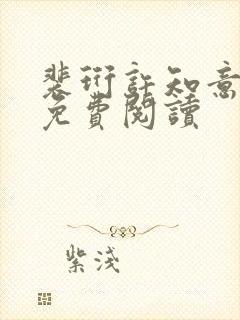 裴衍許知意
免費閱讀
紫淺